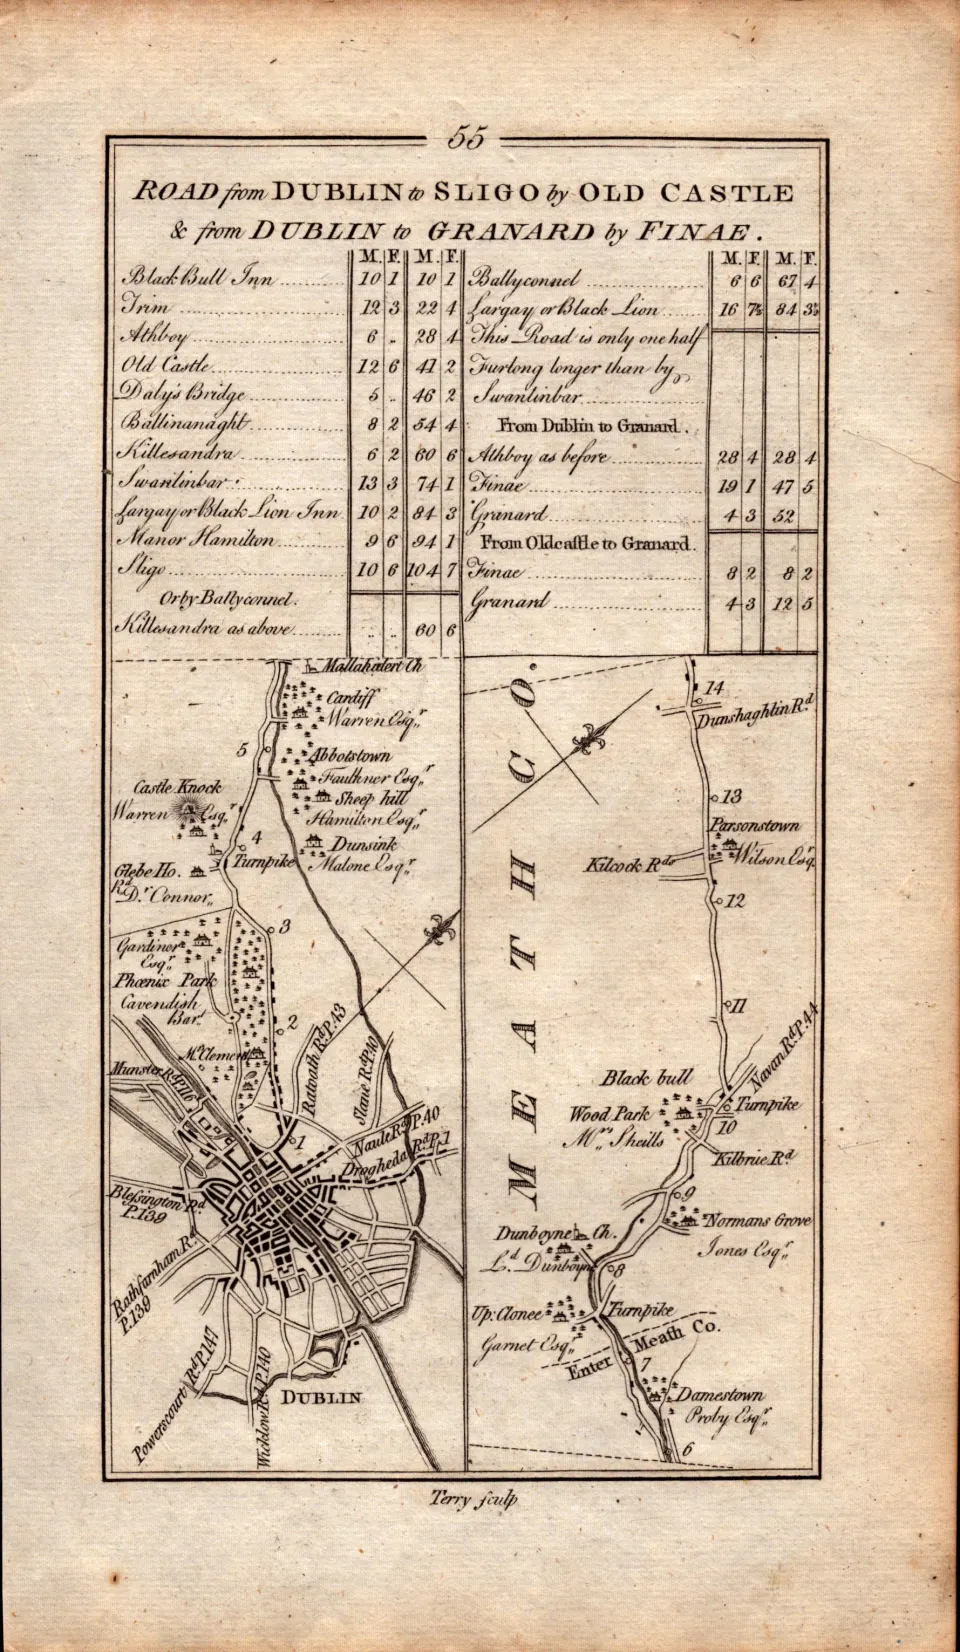 55
ROAD from DUBLIN to SLIGO by OLD CASTLE
& from DUBLIN to GRANARD by FINAE.
M. F. M. F.
Black Bull Inn 10 1 10 1
Trim 12 3 22 4
Athboy 6 .. 28 4
Old Castle 12 6 41 2
Daly's Bridge 5 .. 46 2
Ballinanaght 8 2 54 4
Killesandra 6 2 60 6
Swanlinbar 13 3 74 1
Largay or Black Lion Inn 10 2 84 3
Manor Hamilton 9 6 94 1
Sligo 10 6 104 7
Or by Ballyconnel.
Killesandra as above .. .. 60 6
M. F. M. F.
Ballyconnel 6 6 67 4
Largay or Black Lion 16 7½ 84 3½
This Road is only one half
Furlong longer than by
Swanlinbar
From Dublin to Granard.
Athboy as before 28 4 28 4
Finae 19 1 47 5
Granard 4 3 52
From Oldcastle to Granard.
Finae 8 2 8 2
Granard 4 3 12 5
Mallahalert Ch
Cardiff
Warren Esqr.
5
Abbotstown
Faulkner Esqr.
Sheep hill
Hamilton Esqr.
Castle Knock
Warren Esqr.
4
Turnpike
Dunsink
Malone Esqr.
Glebe Ho.
Rd. Dr. Connor
3
Gardiner
Esqr.
Phœnix Park
Cavendish
Bart.
2
Mr. Clement
Munster Rd. P. 116
Ratoath Rd. P. 43
Slane Rd. P. 40
1
Naule Rd. P. 40
Drogheda Rd. P. 1
Blessington Rd.
P. 139
Rathfarnham Rd.
P. 139
Powerscourt Rd. P. 147
Wicklow Rd. P. 140
DUBLIN
MEATH CO.
14
Dunshaghlin Rd.
13
Parsonstown
Wilson Esqr.
Kilcock Rds.
12
11
Navan Rd. P. 44
Black bull
Wood Park
Mrs. Sheills
Turnpike
10
Kilbrue Rd.
9
Normans Grove
Jones Esqr.
Dunboyne Ch.
Ld. Dunboyne
8
Up: Clonee
Garnet Esqr.
Turnpike
Enter Meath Co.
7
Damestown
Proby Esqr.
6
Terry sculp